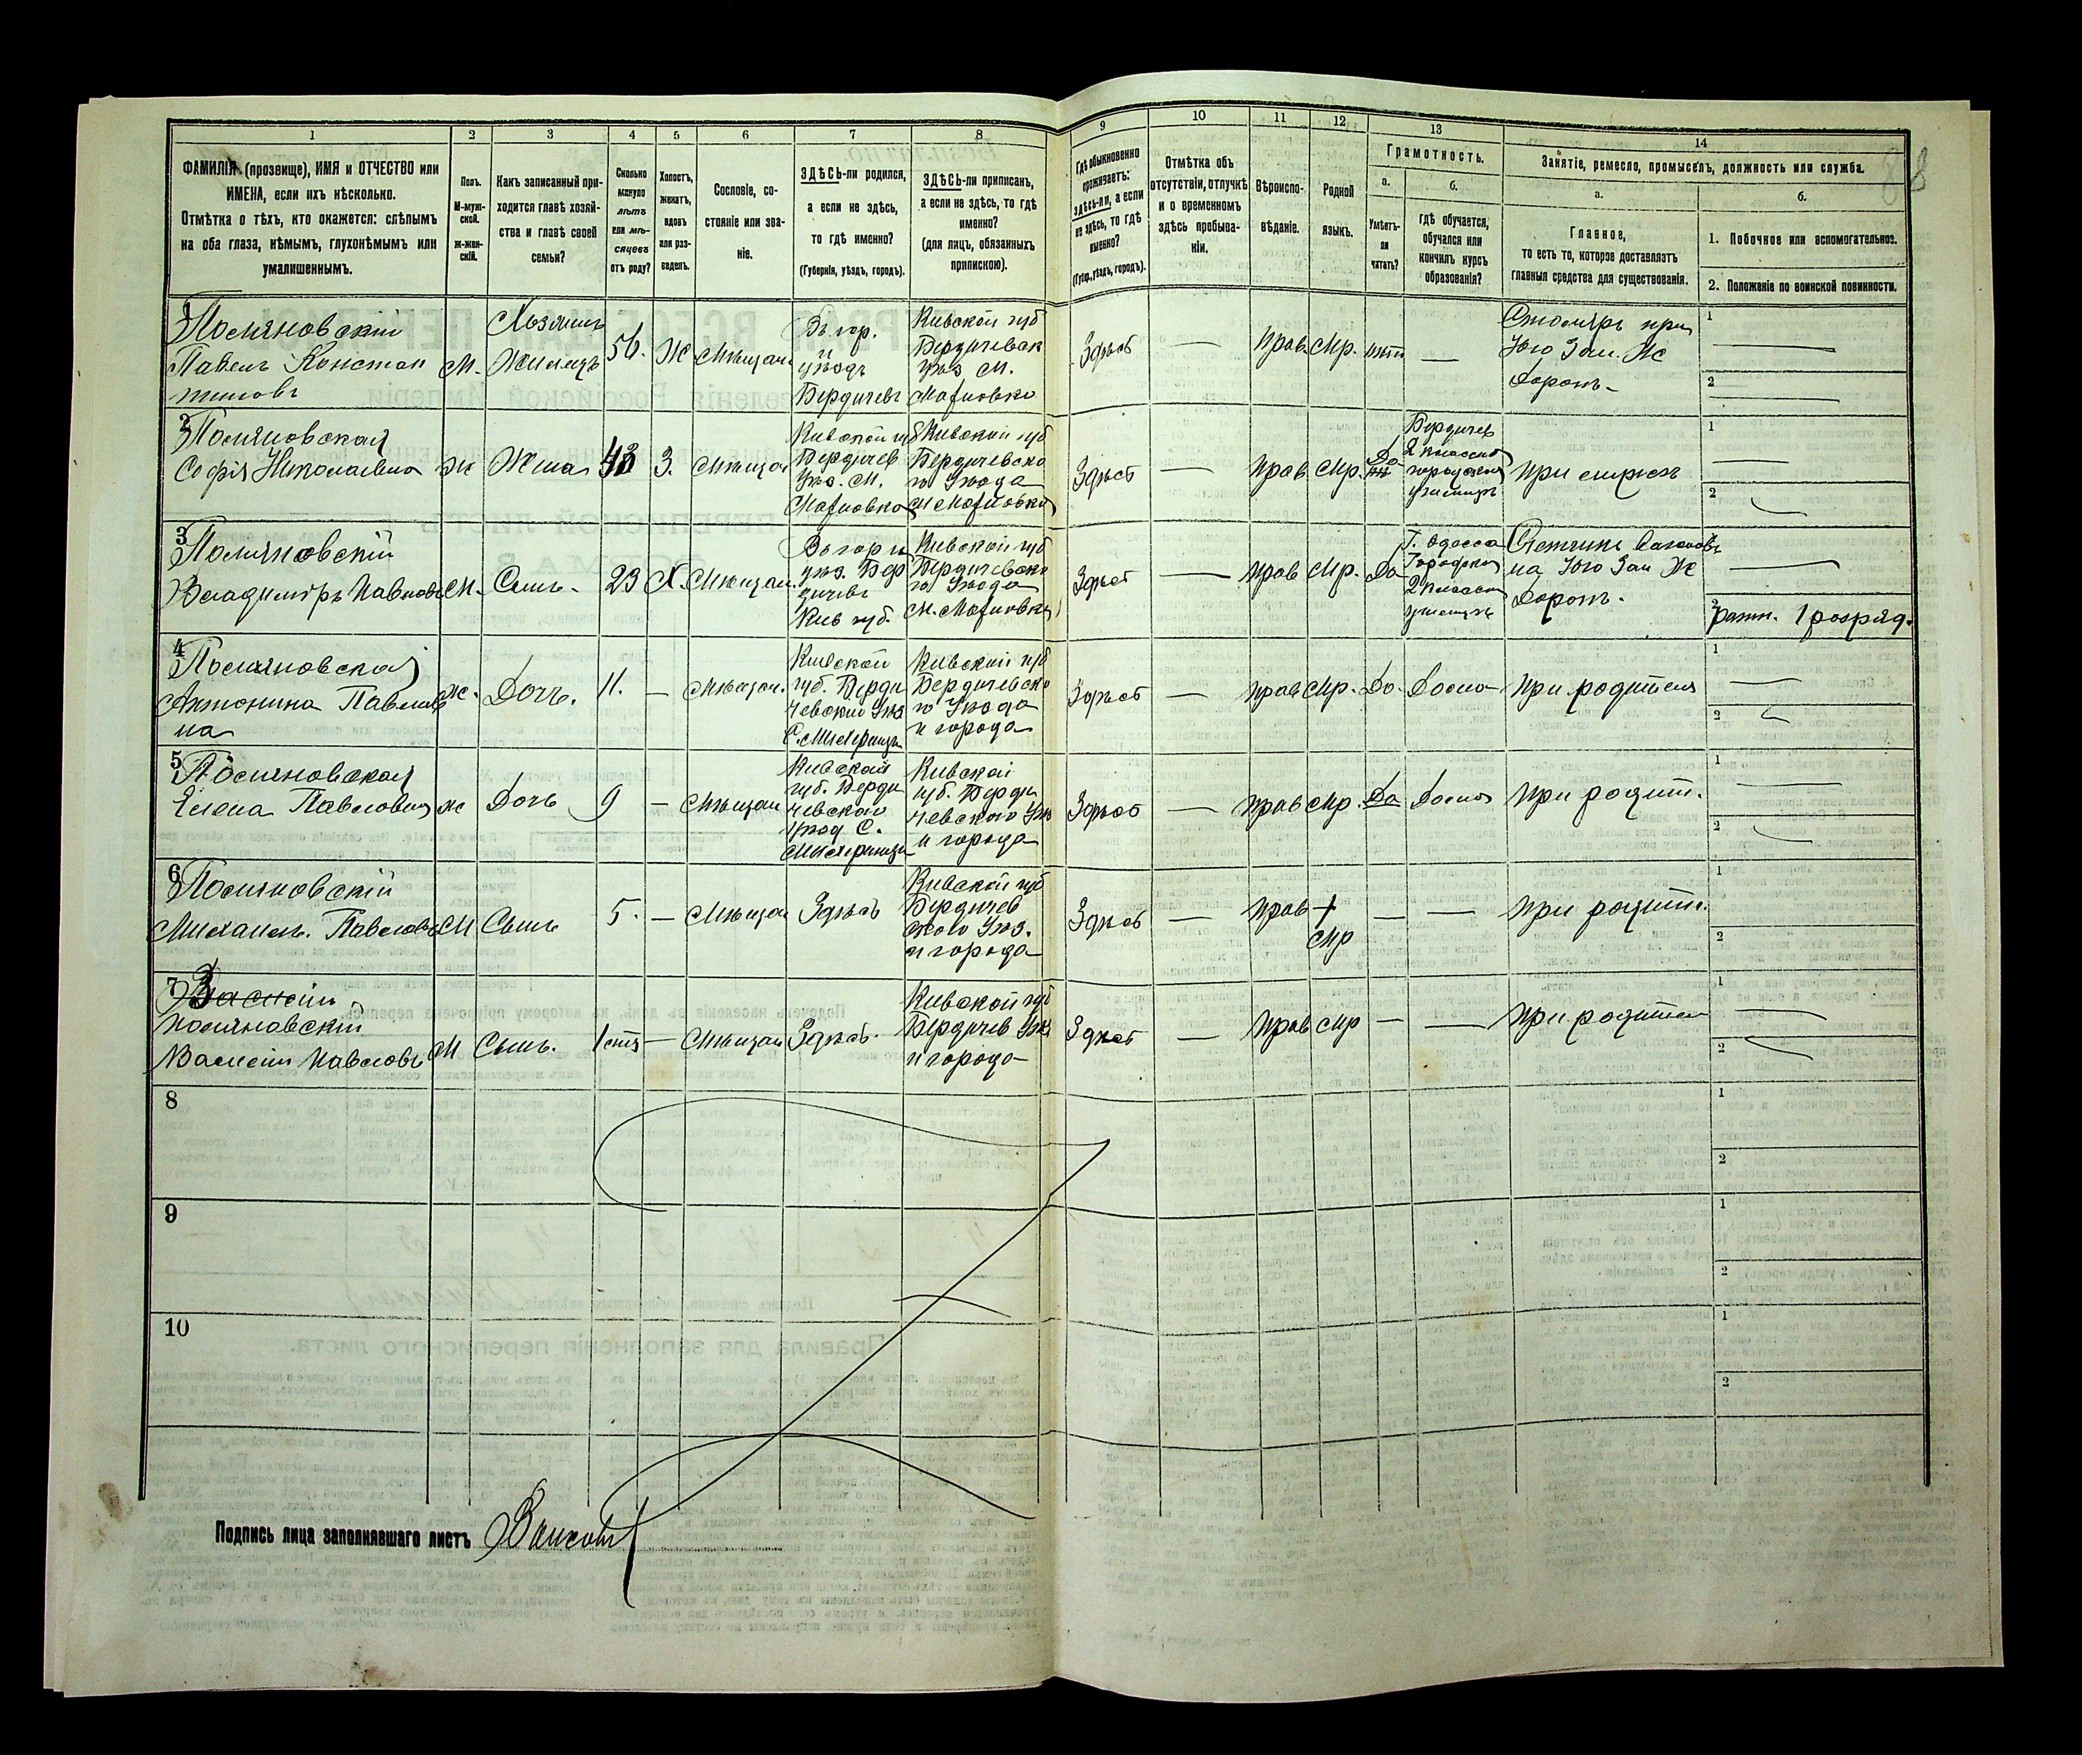 1 2 3 4 5 6 7 8 9 10 11 12 13 14
ФАМИЛІЯ (прозвище), ИМЯ и ОТЧЕСТВО или
ИМЕНА, если ихъ нѣсколько.
Отмѣтка о тѣхъ, кто окажется: слѣпымъ
на оба глаза, нѣмымъ, глухонѣмымъ или
умалишеннымъ.
Полъ.
М-муж-
ской.
ж-жен-
скій.
Какъ записанный при-
ходится главѣ хозяй-
ства и главѣ своей
семьи?
Сколько
минуло
лѣтъ
или мѣ-
сяцевъ
отъ роду?
Холостъ,
женатъ,
вдовъ
или раз-
веденъ.
Сословіе, со-
стояніе или зва-
ніе.
ЗДѢСЬ-ли родился,
а если не здѣсь,
то гдѣ именно?
(Губернія, уѣздъ, городъ).
ЗДѢСЬ-ли приписанъ,
а если не здѣсь, то гдѣ
именно?
(для лицъ, обязанныхъ
припискою).
Гдѣ обыкновенно
проживаетъ:
здѣсь-ли, а если
не здѣсь, то гдѣ
именно?
(Губ., уѣздъ, городъ).
Отмѣтка объ
отсутствіи, отлучкѣ
и о временномъ
здѣсь пребыва-
ніи.
Вѣроиспо-
вѣданіе.
Родной
языкъ.
Грамотность.
а.
Умѣетъ-
ли
читать?
б.
гдѣ обучается,
обучался или
кончилъ курсъ
образованія?
Занятіе, ремесло, промыселъ, должность или служба.
а.
Главное,
то есть то, которое доставляетъ
главныя средства для существованія.
б.
1. Побочное или вспомогательное.
2. Положеніе по воинской повинности.
1
Павелъ Констан
тиновъ
М.
Хозяинъ
56.
Ж
Мѣщан.
Въ гор.
и
уѣздѣ
Бердичевъ
Киевской губ
Бердичевск
уѣз М.
Здѣсь
—
Прав.
Мр.
нѣт
—
Столяръ при
Юго Зап. Ж
дорогѣ
1
2
2
Софія Николаевна
Ж
Жена
43
З.
Мѣщан
Киевской губ
Бердичев
Уѣз. М.
Киевской губ
Бердичевско
го Уѣзда
Здѣсь
—
Прав
Мр.
Да
Бердичев
2 классно
городском
училищѣ
При мужѣ
1
2
3
Владимиръ Павловъ
М.
Сынъ.
23
Х.
Мѣщан.
Въ гор и
уѣз. Бер
дичевъ
Киев губ.
Киевской губ
Бердичевско
го Уѣзда
Здѣсь
—
Прав
Мр.
Да
Г. Одесса
Городском
2 классн
училищѣ
вагоновъ
на Юго Зап Ж
дорогѣ.
2
Ратн. 1 разряд.
4
Антонина Павлов
на
Ж.
Дочь.
11.
—
Мѣщан.
Киевской
губ. Берди
чевской Уѣз
Киевской губ
Бердичевско
го Уѣзда
и города
Здѣсь
—
Прав
Мр.
Да.
Дома
При родителя
1
2
5
Елена Павловна
Ж
Дочь
9
—
Мѣщан
Киевской
губ. Берди
чевского
Уѣзд С.
Киевской
губ. Берди
чевского Уѣз
и города
Здѣсь
—
Прав
Мр.
Да
Дома
При родит.
1
2
6
Михаилъ. Павловъ
М
Сынъ
5.
—
Мѣщан
Здѣсь
Киевской губ
Бердичев
ского Уѣз.
и города
Здѣсь
—
Прав
+
Мр
—
—
При родит.
1
2
7
Василій
Василій Павловъ
М
Сынъ.
—
Мѣщан
Здѣсь.
Киевской губ
Бердичев Уѣз
и города
Здѣсь
—
Прав
Мр
—
—
При родител
1
2
8
1
2
9
1
2
10
1
2
Подпись лица заполнявшаго листъ